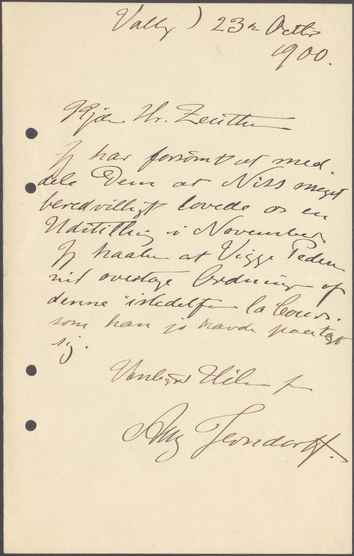 Valby 23de Octbr
1900.
Kjære Hr. Zeuthen
Jeg har forsömt at med-
dele Dem at Niss meget
beredvilligt lovede os en
Udstilling i November
Jeg haaber at Viggo Pedersen
vil overtage Ordning af
denne istedetfor la Cour.
som han jo havde paataget
sig.
Venlig Hilsen fra
Aug Jerndorff.